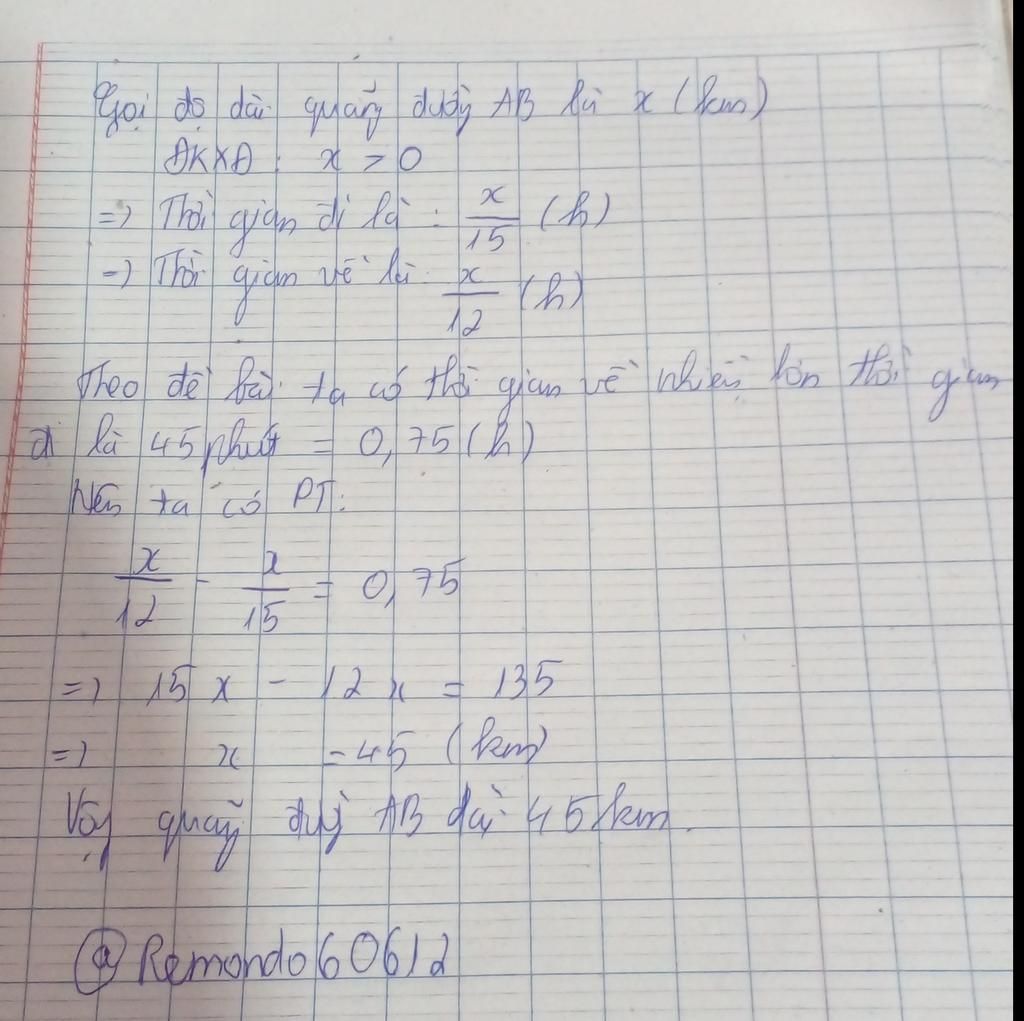 Gọi độ dài quãng đường AB là x (km)
ĐKXĐ: x > 0
=> Thời gian đi là: x/15 (h)
=> Thời gian về là: x/12 (h)
Theo đề bài ta có thời gian về nhiều hơn thời gian
đi là 45 phút = 0,75 (h)
Nên ta có PT:
x/12 - x/15 = 0,75
=> 15x - 12x = 135
=> x = 45 (km)
Vậy quãng đường AB dài 45 km.
@Remondo60612